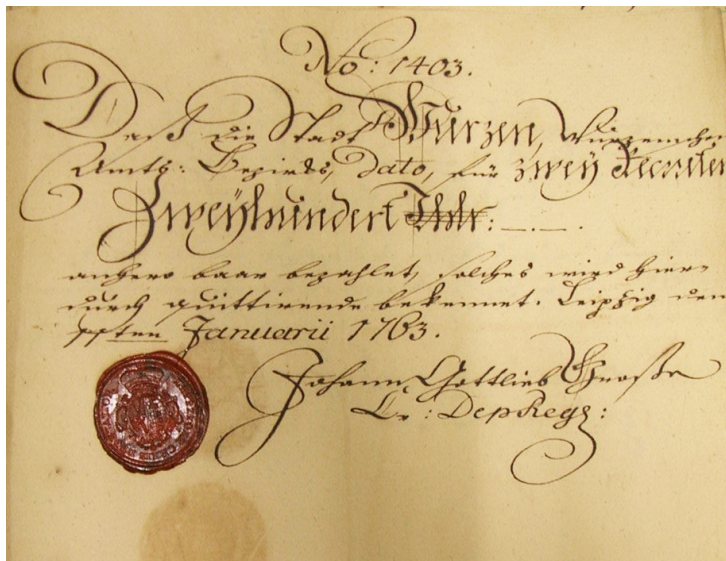 No: 1403.
Daß die Stadt Wurzen, Wurzenscher
Amtß: Bezirks, dato, für zwey Recruten
Zweyhundert Thlr: _._._
anhero baar bezahlet, solches wird hier-
durch quittirende bekennet. Leipzig den
Januarii 1763.
Johann Gottlieb Große